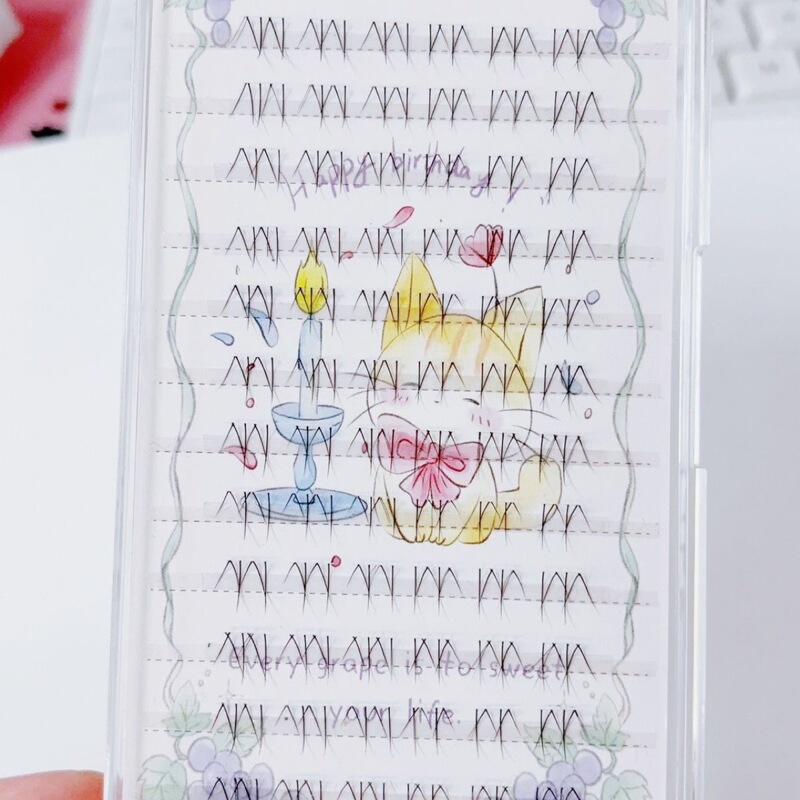 Happy birthday
Every grape is to sweet
your life.